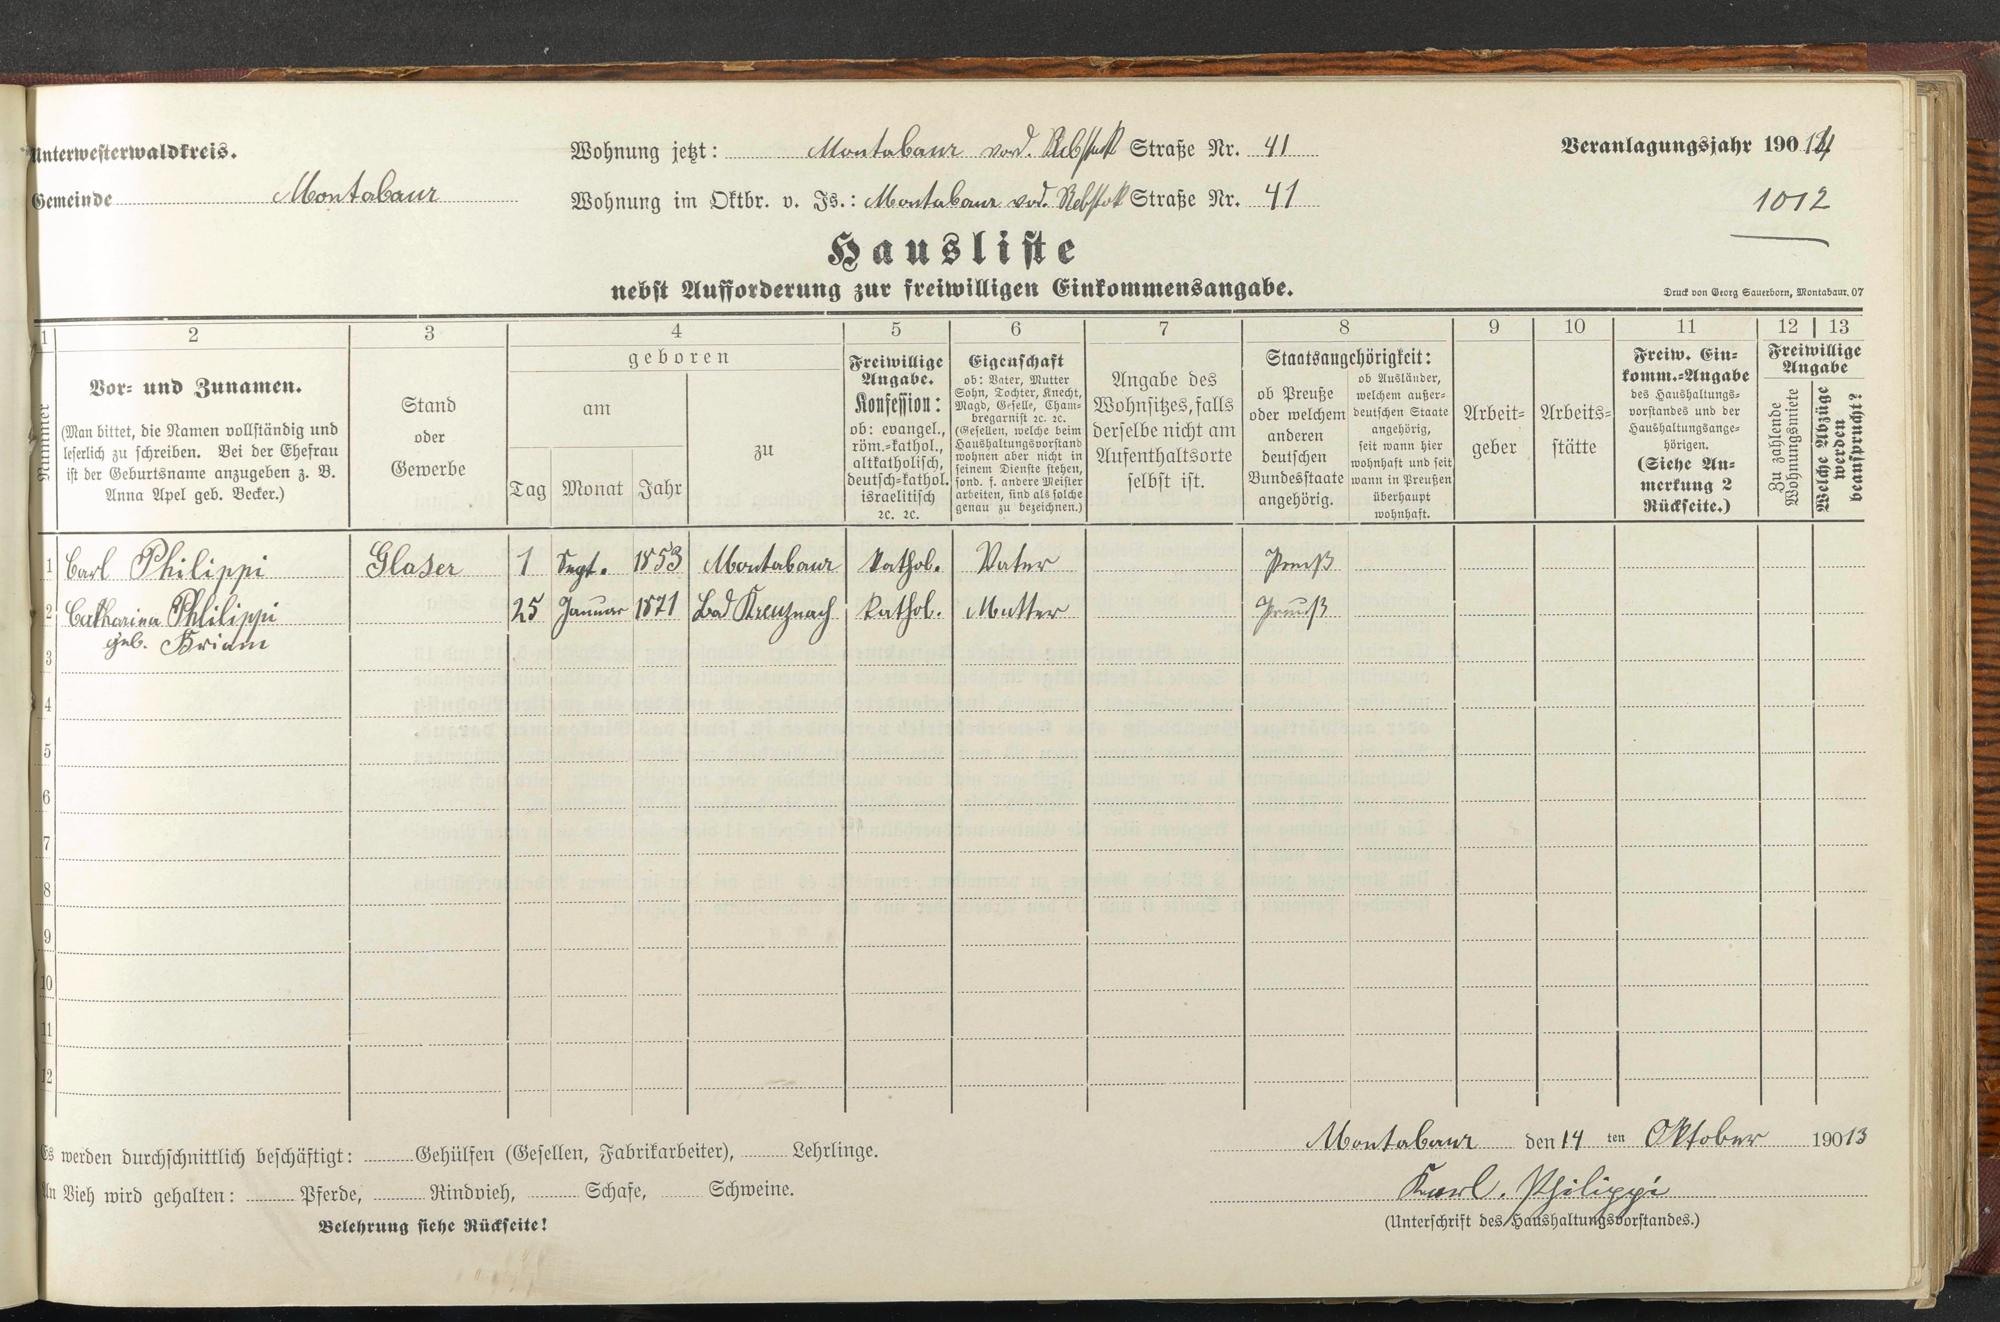 Unterwesterwaldkreis.
Gemeinde Montabaur
Wohnung jetzt: Montabaur vord. Rebstock Straße Nr. 41
Wohnung im Oktbr. v. Js.: Montabaur vod. Rebstok Straße Nr. 41
Veranlagungsjahr 190 14
1012
Hausliste
nebst Aufforderung zur freiwilligen Einkommensangabe.
Druck von Georg Sauerborn, Montabaur. 07
1 2 3 4 5 6 7 8 9 10 11 12 13
Nummer
Vor- und Zunamen.
(Man bittet, die Namen vollständig und
leserlich zu schreiben. Bei der Ehefrau
ist der Geburtsname anzugeben z. B.
Anna Apel geb. Becker.)
Stand
oder
Gewerbe
geboren
am
Tag Monat Jahr
zu
Freiwillige
Angabe.
Konfession:
ob: evangel.,
röm.-kathol.,
altkatholisch,
deutsch-kathol.
israelitisch
ꝛc. ꝛc.
Eigenschaft
ob: Vater, Mutter
Sohn, Tochter, Knecht,
Magd, Geselle, Cham-
bregarnist ꝛc. ꝛc.
(Gesellen, welche beim
Haushaltungsvorstand
wohnen aber nicht in
seinem Dienste stehen,
sond. f. andere Meister
arbeiten, sind als solche
genau zu bezeichnen.)
Angabe des
Wohnsitzes, falls
derselbe nicht am
Aufenthaltsorte
selbst ist.
Staatsangehörigkeit:
ob Preuße
oder welchem
anderen
deutschen
Bundesstaate
angehörig.
ob Ausländer,
welchem außer-
deutschen Staate
angehörig,
seit wann hier
wohnhaft und seit
wann in Preußen
überhaupt
wohnhaft.
Arbeit-
geber
Arbeits-
stätte
Freiw. Ein-
komm.-Angabe
des Haushaltungs-
vorstandes und der
Haushaltungsange-
hörigen.
(Siehe An-
merkung 2
Rückseite.)
Freiwillige
Angabe
Zu zahlende
Wohnungsmiete
Welche Abzüge
werden
beansprucht?
1 Carl Philippi Glaser 1 Sept. 1853 Montabaur Kathol. Vater Preuß
2 Catharina Philippi 25 Januar 1871 Bad Kreuznach Kathol. Mutter Preuß
geb. Kriam
3
4
5
6
7
8
9
10
11
12
Es werden durchschnittlich beschäftigt: Gehülfen (Gesellen, Fabrikarbeiter), Lehrlinge.
An Vieh wird gehalten: Pferde, Rindvieh, Schafe, Schweine.
Belehrung siehe Rückseite!
Montabaur den 14 ten Oktober 190 13
Karl. Philippi
(Unterschrift des Haushaltungsvorstandes.)